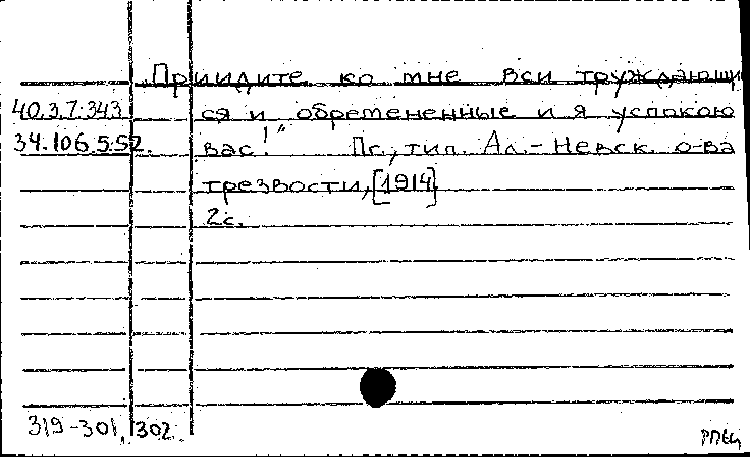 „Приидите ко мне вси труждающи
40.3.7.343 ся и обремененные и я успокою
34.106.5.52. вас!" Пг., тип. Ал.-Невск. о-ва
трезвости, [1914].
2с.
319-301, 302